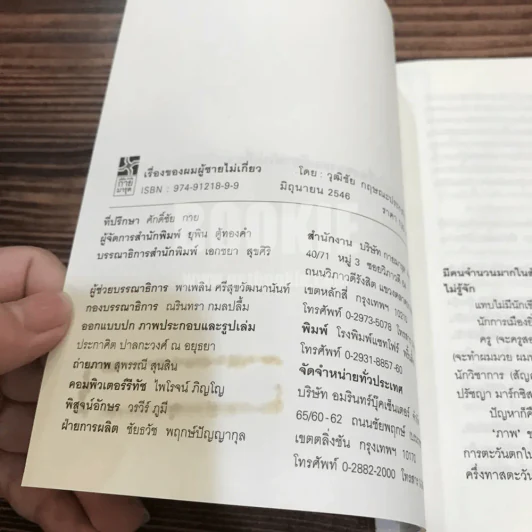 เรื่องของผมผู้ชายไม่เกี่ยว
ISBN : 974-91218-9-9
โดย : วุฒิชัย
มิถุนายน 2546
ราคา
ที่ปรึกษา ศักดิ์ชัย กาย
ผู้จัดการสำนักพิมพ์ ยุพิน ตู้ทองคำ
บรรณาธิการสำนักพิมพ์ เอกชยา สุขศิริ
ผู้ช่วยบรรณาธิการ พาเพลิน ศรีสุขวัฒนานันท์
กองบรรณาธิการ ณรินทรา กมลปลื้ม
ออกแบบปก ภาพประกอบและรูปเล่ม
ประกาศิต ปาลกะวงศ์ ณ อยุธยา
ถ่ายภาพ สุพรรณี สุนสิน
คอมพิวเตอร์รีทัช ไพโรจน์ ภิญโญ
พิสูจน์อักษร วรวีร์ ภูมี
ฝ่ายการผลิต ชัยธวัช พฤกษ์ปัญญากุล
สำนักงาน บริษัท
40/71 หมู่ 3 ซอยวิภาวดี
ถนนวิภาวดีรังสิต แขวงตลาด
เขตหลักสี่ กรุงเทพฯ 10210
โทรศัพท์ 0-2973-5078
พิมพ์ โรงพิมพ์แซทโฟร์
โทรศัพท์ 0-2931-8857-60
จัดจำหน่ายทั่วประเทศ
บริษัท อมรินทร์บุ๊คเซ็นเตอร์ จำกัด
65/60-62 ถนนชัยพฤกษ์
เขตตลิ่งชัน กรุงเทพฯ 10170
โทรศัพท์ 0-2882-2000
มีคนจำนวนมากใน
ไม่รู้จัก
แทบไม่มีนัก
นักการเมือง
ครู (จะครู
(จะทำผมมวย
นักวิชาการ
ปรัชญา มาร์กซิส
ปัญหาก็คื
'ภาพ'
การตะวันตก
ครึ่งทาสตะวัน